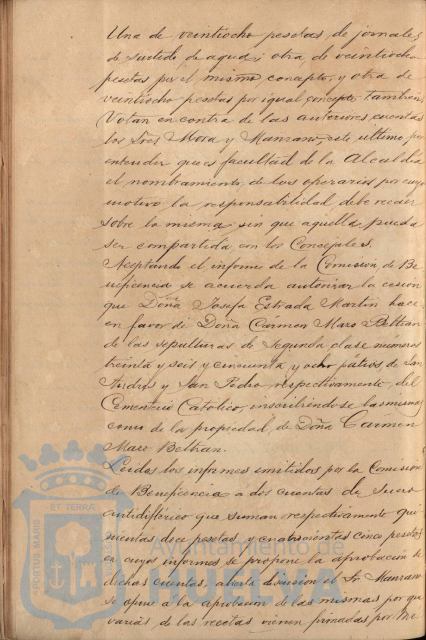 Una de veintiocho pesetas de jornales
de surtido de agua; otra de veintiocho
pesetas por el mismo concepto, y otra de
veintiocho pesetas por igual concepto. Tambien
Votan en contra de las anteriores cuentas
los Sres Mora y Manzano, este ultimo, por
entender que es facultad de la Alcaldia
el nombramiento de los operarios por cuyo
motivo la responsabilidad debe recaer
sobre la misma sin que aquella pueda
ser compartida con los Concejales.
Aceptando el informe de la Comision de Be
neficencia se acuerda autorizar la cesion
que Doña Josefa Estrada Martin hace
en favor de Doña Cármen Maro Beltran
de las sepulturas de Segunda clase numeros
treinta y seis y cincuenta y ocho pátios de San
Andres y San Pedro respectivamente, del
Cementerio Catolico, inscribiendose las mismas
como de la propiedad de Doña Carmen
Maro Beltran.
Leidos los informes emitidos por la Comision
de Beneficencia a dos cuentas de suero
antidifterico que suman respectivamente qui
nientas doce pesetas y cuatrocientas cinco pesetas
en cuyos informes se propone la aprobacion de
dichas cuentas, abierta discusion el Sr. Manzano
se opone á la aprobacion de las mismas por que
varias de las recetas vienen firmadas por Me
PORTUS MARIS ET TERRAE
Ayuntamiento de
HUELVA